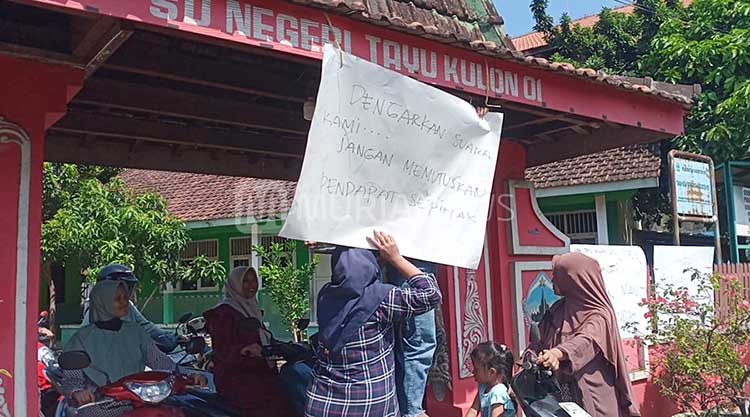 SD NEGERI TAYU KULON 01
DENGARKAN SUARA
KAMI....
JANGAN MEMUTUSKAN
PENDAPAT SEPIHAK
MURIANEWS